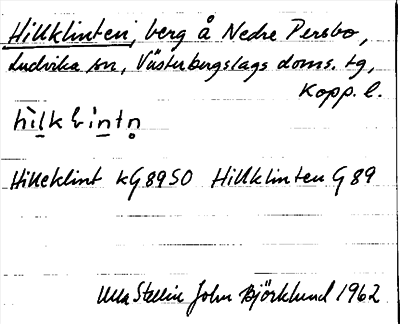 Hillklinten, berg å Nedre Persbo,
Ludvika sn, Västerbergslags doms. tg,
Kopp. l.
Hilleklint KG 89 SO Hillklinten G 89
Ulla Stellin John Björklund 1962